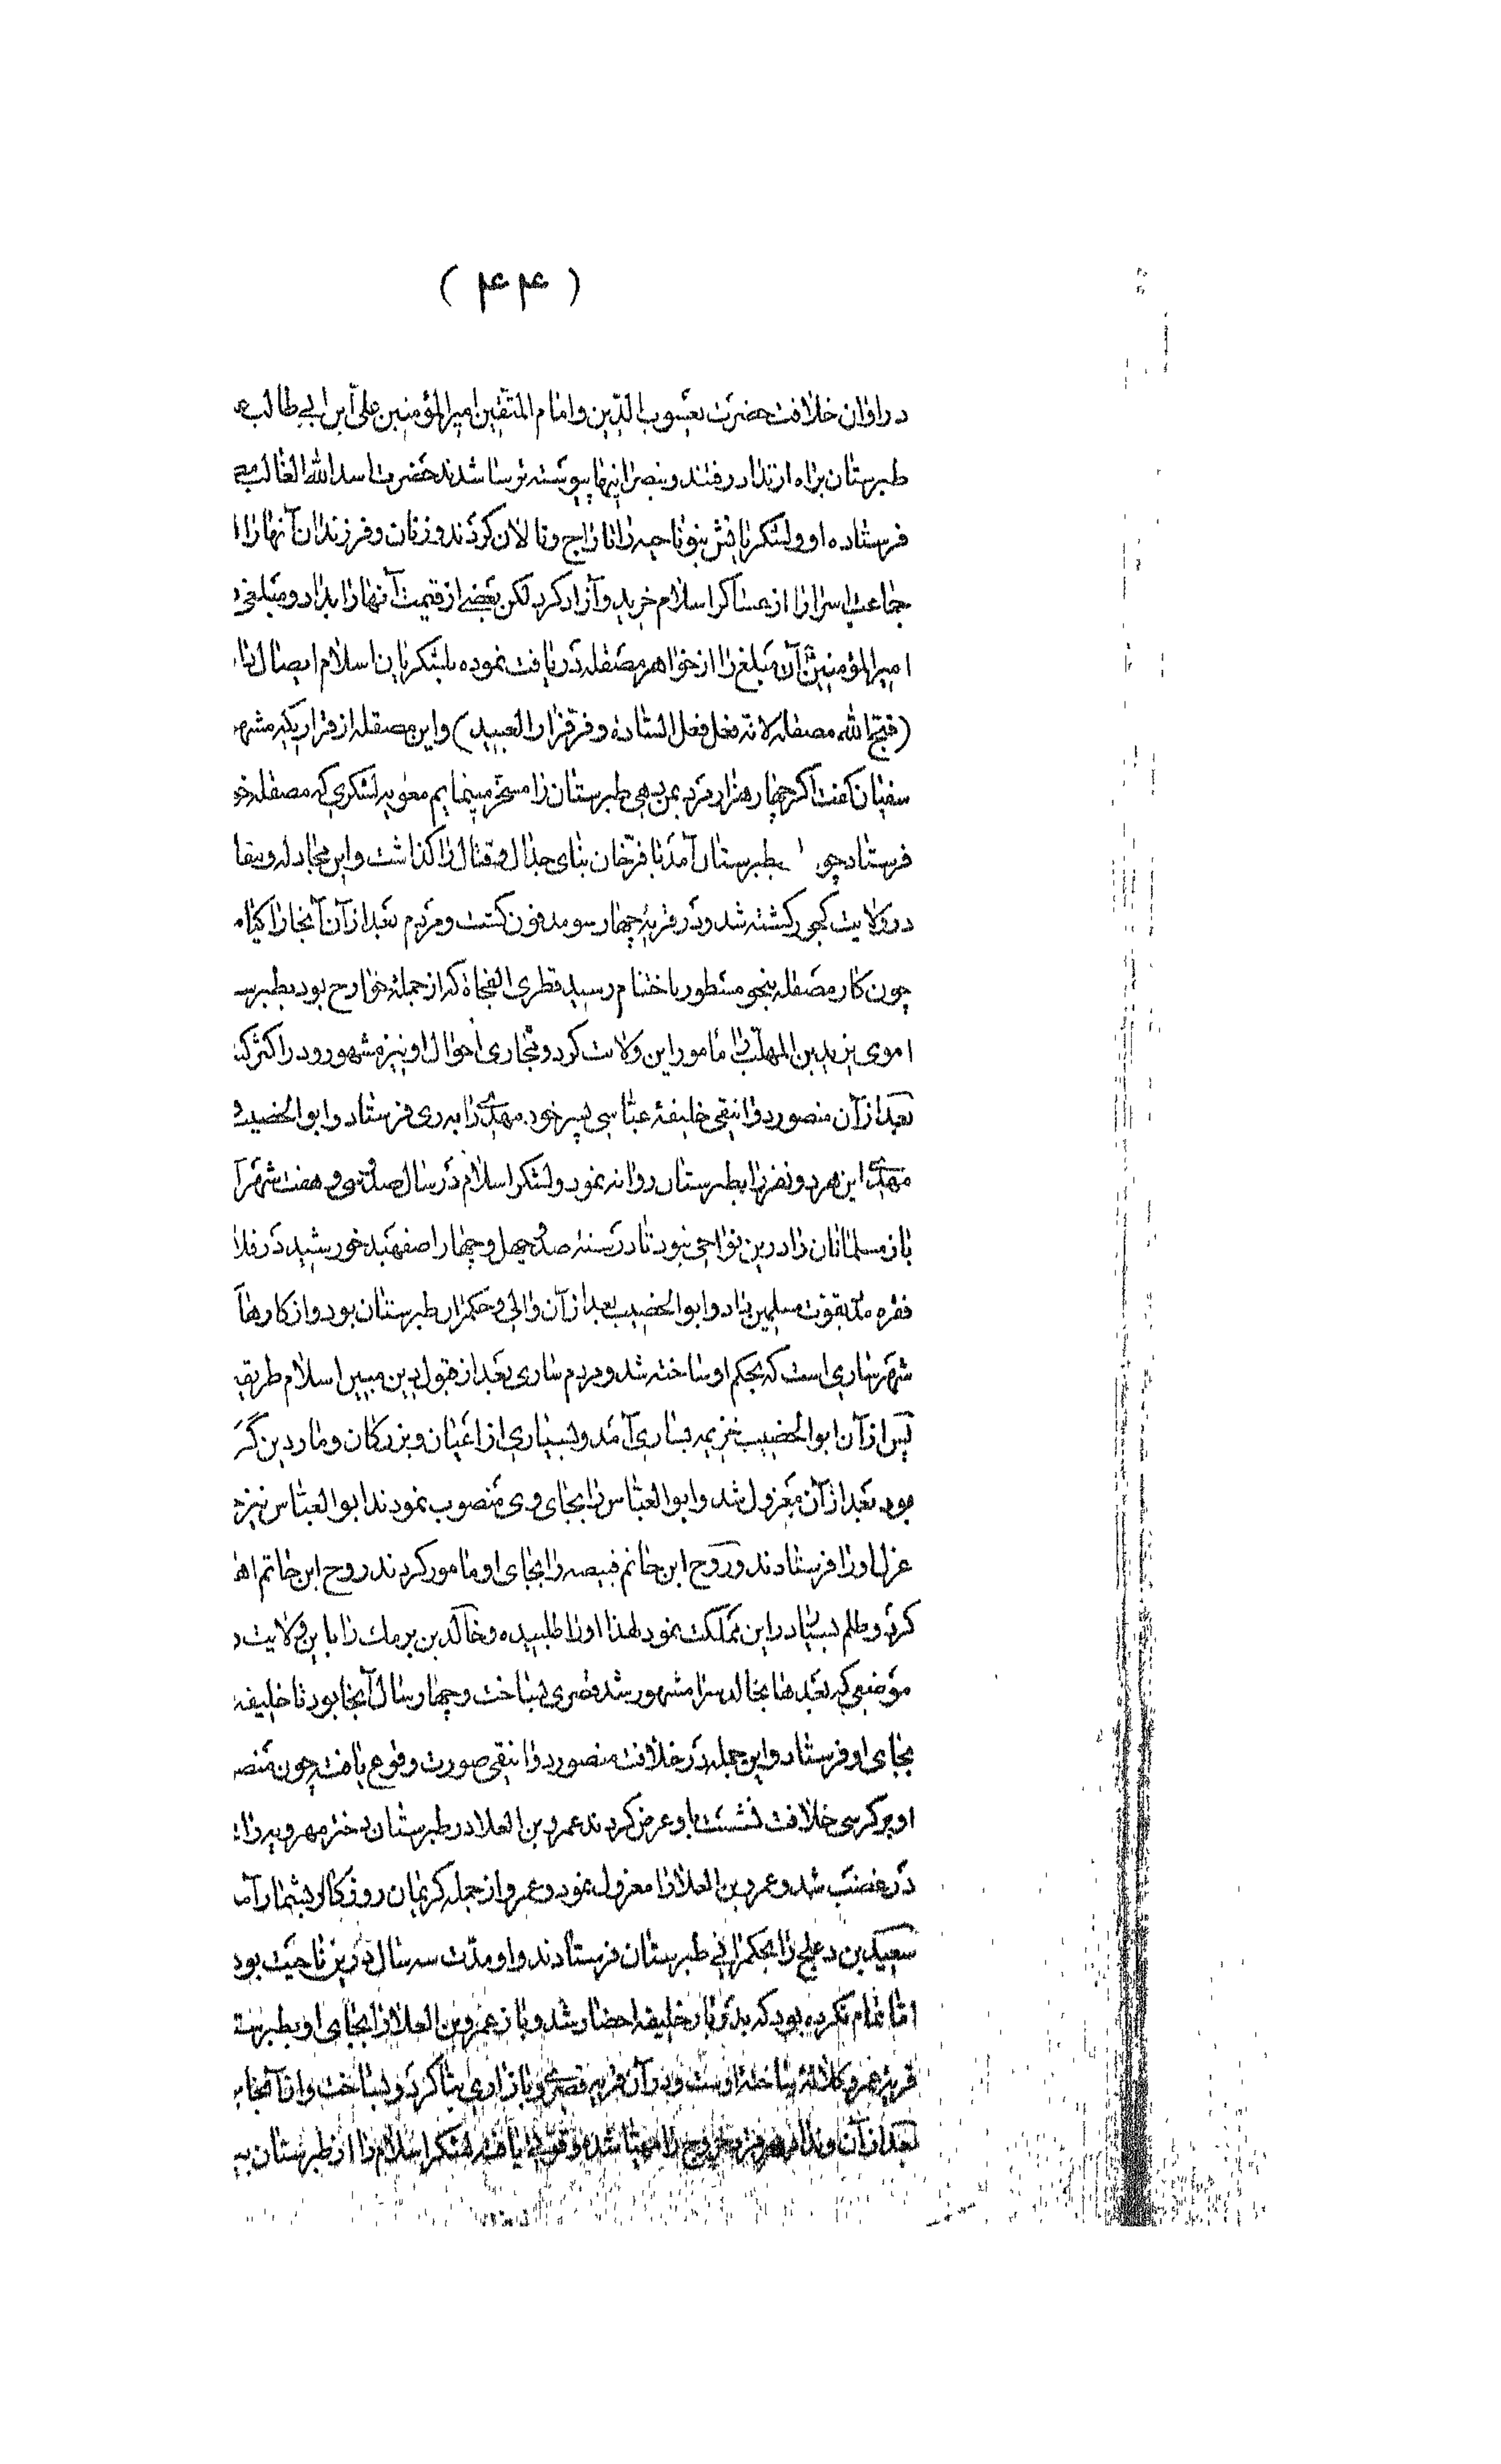 ( ۴۴ )
در اوان خلافت حضرت یعسوب الدّین و امام المتّقین امیر المؤمنین علیّ ابن ابی طالب ع
طبرستان براه ارتداد رفتند و بنصرانیتها پیوسته ترسا شدند حضرت اسد الله الغالب
فرستاده او و لشکریانش بنو ناحیه را تاراج و تالان کردند و زنان و فرزندان آنها را
جماعت اسرا را از عساکر اسلام خرید و آزاد کرد لکن بعضی از قیمت آنها را بداد و مبلغی
امیر المؤمنین آن مبلغ را از خواهر مصقله دریافت نموده بلشکریان اسلام ایصال
(قبّح الله مصقله لانّه فعل فعل السّادة و فرّ فرار العبید) و این مصقله از قراریکه مشهو
سفیان گفت اگر چهار هزار مرد بمن بدهی طبرستان را مسخّر مینمایم معویه لشکری که مصقله خو
فرستاد چو بطبرستان آمد با فرّخان بنای جدال و قتال را گذاشت و این مجادله و مقا
در ولایت کجور کشته شد و در قریهٔ چهار سو مدفون گشت و مردم بعد از آن آنجا را کیا
چون کار مصقله بنحو مسطور باختتام رسید قطری الفجاة که از جملهٔ خوارج بود بطبرس
اموی یزید بن المهلّب را مأمور این ولایت کرد و مجاری احوال او نیز مشهور و در اکثر کت
بعد از آن منصور دوانیقی خلیفهٔ عبّاسی پسر خود مهدی را به ری فرستاد و ابو الخضیب و
مهدی این هر دو نفر را بطبرستان روانه نمود و لشکر اسلام در سال صد و سی و هفت شهر آ
باز مسلمانان را درین نواحی نبود تا در سنهٔ صد و چهل و چهار اصفهبد خورشید در
بقوّت مسلمین بداد و ابو الخضیب بعد از آن والی و حکمران طبرستان بود و از کارها
شهر ساری است که بحکم او ساخته شد و مردم ساری بعد از قبول دین مبین اسلام طریقه
پس از آن ابو الخضیب خزیمه بساری آمد و بسیاری از اعیان و بزرگان و
بود بعد از آن معزول شد و ابو العبّاس را بجای وی منصوب نمودند ابو العبّاس نیز
عزل او را فرستادند و روح ابن حاتم قبیصه را بجای او مامور کردند روح ابن حاتم اها
کرد و ظلم بسیار در این مملکت نمود لهذا او را طلبیده و خالد بن برمک را باین ولایت
موضعی که بعدها بخالد سرا مشهور شد قصری بساخت و چهار سال آنجا بود تا خلیفه
بجای او فرستاد و این جمله در خلافت منصور دوانیقی صورت وقوع یافت چون منص
او بر کرسی خلافت نشست باو عرض کردند عمرو بن العلا در طبرستان دختر مهرویه را
در غضب شد و عمرو بن العلا را معزول نمود و عمرو از جمله کریمان روزگار بشمار
سعید بن دعلج را بحکمرانی طبرستان فرستادند و او مدّت سه سال درین ناحیت بود
امّا تمام نکرده بود که بدربار خلیفه احضار شد و باز عمرو بن العلا را بجای او بطبرست
قریهٔ عمرو کلاته ساخته اوست و در آن قریه قصری و بازاری بنا کرد و بساخت و از آنجا
بعد از آن ونداد هرمز خروج را مهیّا شده و قوّتی یافته لشکر اسلام را از طبرستان